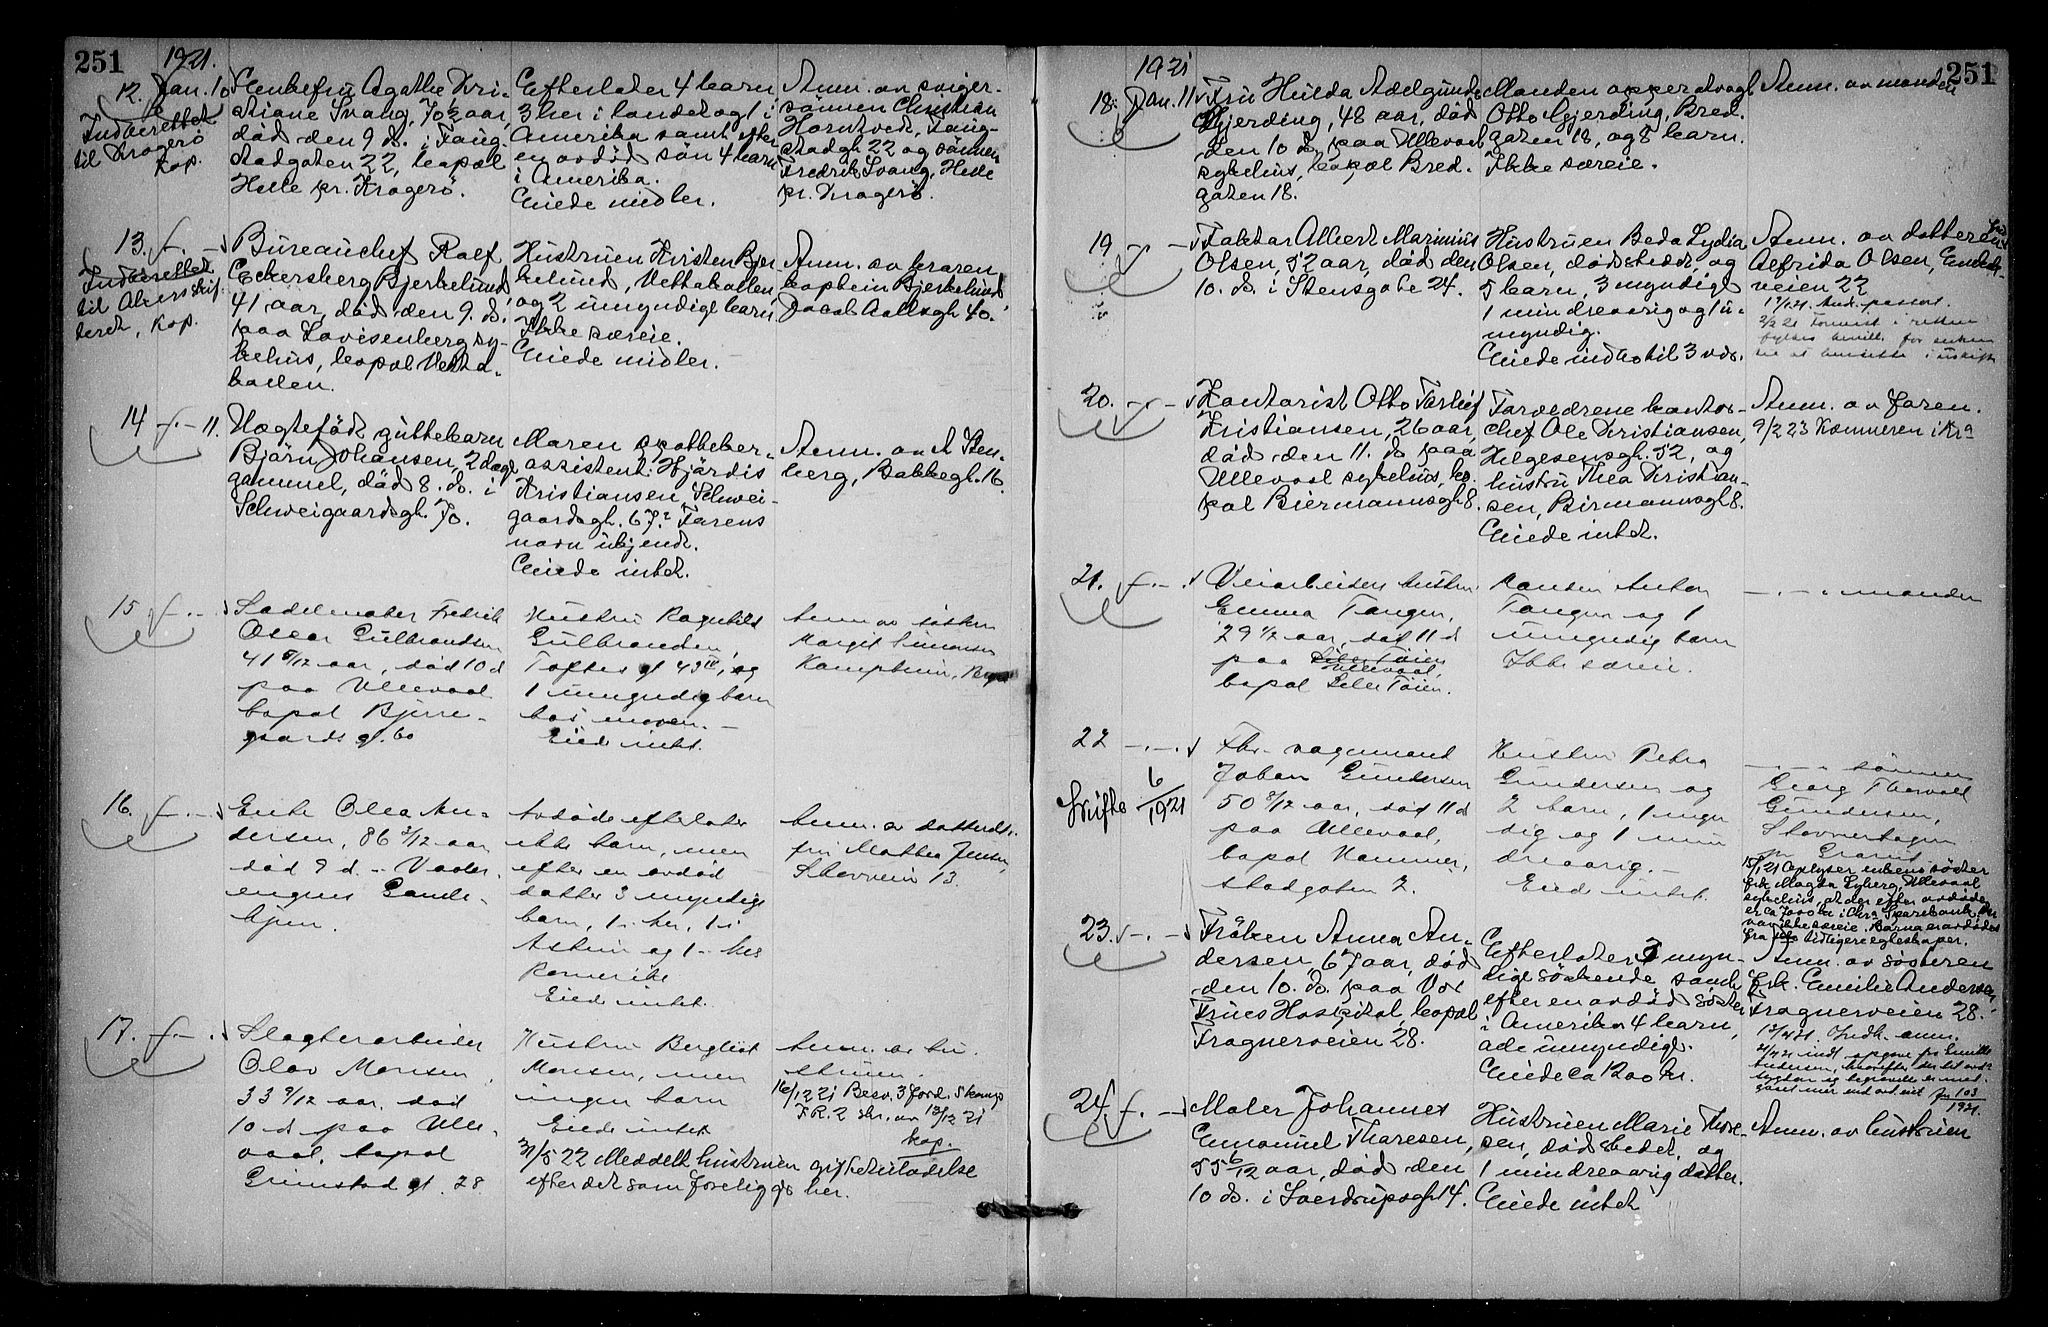 251
1921.
12. Jan. 10
Indberettet
til Kragerö
kop.
Enkefru Agathe Kri-
stiane Svang, 70½ aar,
död den 9 ds. i Faug-
stadgaten 22, bopæl
Helle pr. Kragerö.
Efterlater 4 barn
3 her i landet og 1 i
Amerika samt efter
en avdöd sön 4 barn
i Amerika.
Eiede midler.
Anm. av sviger-
sönnen Christian
Horntvedt, Faug-
stadgt. 22 og sönnen
Fredrik Svang, Helle
pr. Kragerö.
13.
Indberettet
til Akers skif-
teret, kop.
Bureauchef Ralf
Eckersberg Bjerkelund,
41 aar, död den 9. ds.
paa Lovisenberg sy-
kehus, bopæl Vetta-
kollen.
Hustruen Kirsten Bjer-
kelund, Vettakollen
og 2 umyndige barn
Ikke særeie.
Eiede midler.
Anm. av broren
kaptein Bjerkelund,
Jacob Aallsgt. 40.
14 11.
Uegtefödt guttebarn
Björn Johansen, 2 dage
gammel, död 8. ds. i
Schweigaardsgt. 70.
Moren apotheker-
assistent Hjördis
Kristiansen, Schwei-
gaardsgt. 67. Farens
navn ukjendt.
Eiede intet.
Anm. av A. Sten-
berg, Bakkegt. 16.
15
Sadelmaker Fredrik
Oscar Gulbrandsen
41 aar, död 10 d
paa Ullevaal
bopæl Bjerre-
gaards g. 60
Hustru Ragnhild
Gulbrandsen,
Toftes gt 49 IV, og
1 umyndig barn
hos moren.
Eied intet.
Anm av søsteren
Margit Simonsen
16.
Enke Olea An-
dersen, 86 aar
död 9 d. Vaaler-
engens Gamle-
hjem.
Avdøde efterlater
ikke barn, men
efter en avdød
datter 3 myndige
barn, 1 her, 1 i
Askim og 1
Romerike
Eied intet.
Anm. av datterdt.
fru Mathea Jensen,
13.
17.
Slagteriarbeider
Olav Monsen,
33 9/12 aar, død
10 d paa Ulle-
vaal, bopæl
Grimstad gt. 28
Hustru Bergliot
Monsen, men
ingen barn
Eiede intet
Anm. av hu-
struen.
16/12 21 Besv. 3 ford. Skomp
F.R. 2 skr. av 13/12 21
kop.
31/5 22 Meddelt hustruen
efter det som foreligger her.
251
1921
18. Jan. 11
Fru Hulda Adelgunde
Gjerding, 48 aar, död
den 10 ds. paa Ullevaal
sykehus, bopæl Bred-
gaten 18.
Manden oppardvagt
Otto Gjerding, Bred-
gaten 18, og 8 barn.
Ikke særeie.
Anm. av manden
19
Faktor Albert Marinius
Olsen, 52 aar, död den
10. ds. i Stensgate 24.
Hustruen Beda Lydia
Olsen, dödstedet, og
5 barn, 3 myndige
1 mindreaarig og 1 u-
myndig.
Eiede indtil 3 vds.
Anm. av datteren
Alfrida Olsen,
veien 22
20.
Kontorist Otto Torleif
Kristiansen, 26 aar,
död den 11. ds. paa
Ullevaal sykehus, bo-
pæl Biermannsgt 8.
Forældrene kontor-
chef Ole Kristiansen,
Helgesensgt. 52, og
hustru Thea Kristian-
sen, Birmannsgt 8.
Eiede intet.
Anm. av faren.
9/2 23 Kæmneren i Kra
21.
Veiarbeiders hustru
Emma Tangen,
29 1/2 aar, död 11 d
paa Lille Tøien
Ullevaal,
bopæl Lille Tøien.
Manden Anton
Tangen og 1
umyndig barn
Ikke særeie.
manden
22
Skifte 6/1921
Fhv. vognmand
Johan Gundersen
50 8/12 aar, død 11 d
paa Ullevaal,
bopæl Hammer-
stadgaten 2.
Hustru Petra
Gundersen og
2 barn, 1 myn-
dig og 1 min
dreaarig.
Eied intet.
sönnen
Georg Thorvald
Gundersen,
Grorud
15/1 21 Oplyser enkens söster
frk. Magda Lyberg, Ullevaal
sykehus, at der efter avdøde
er ca 7000 kr i Chra Sparebank. Der
var ikke særeie. Barna er avdødes
fra tidligere egteskaper.
23.
Fröken Anna An-
dersen, 67 aar, död
den 10. ds. paa Vor
Frues Hospital, bopæl
Frognerveien 28.
Efterlater 3 myn-
dige söskende samt
efter en avdöd söster
i Amerika 4 barn,
alle umyndige.
Eiede ca 1200 kr.
Anm. av søsteren
frk. Emilie Andersen,
Frognerveien 28.
24.
Maler Johannes
Emanuel Thoresen,
55 6/12 aar, död den
10 ds. i Sverdrupsgt 14.
Hustruen Marie Thore-
sen, dödstedet, og
1 mindreaarig datter.
Eiede intet
Anm. av hustruen